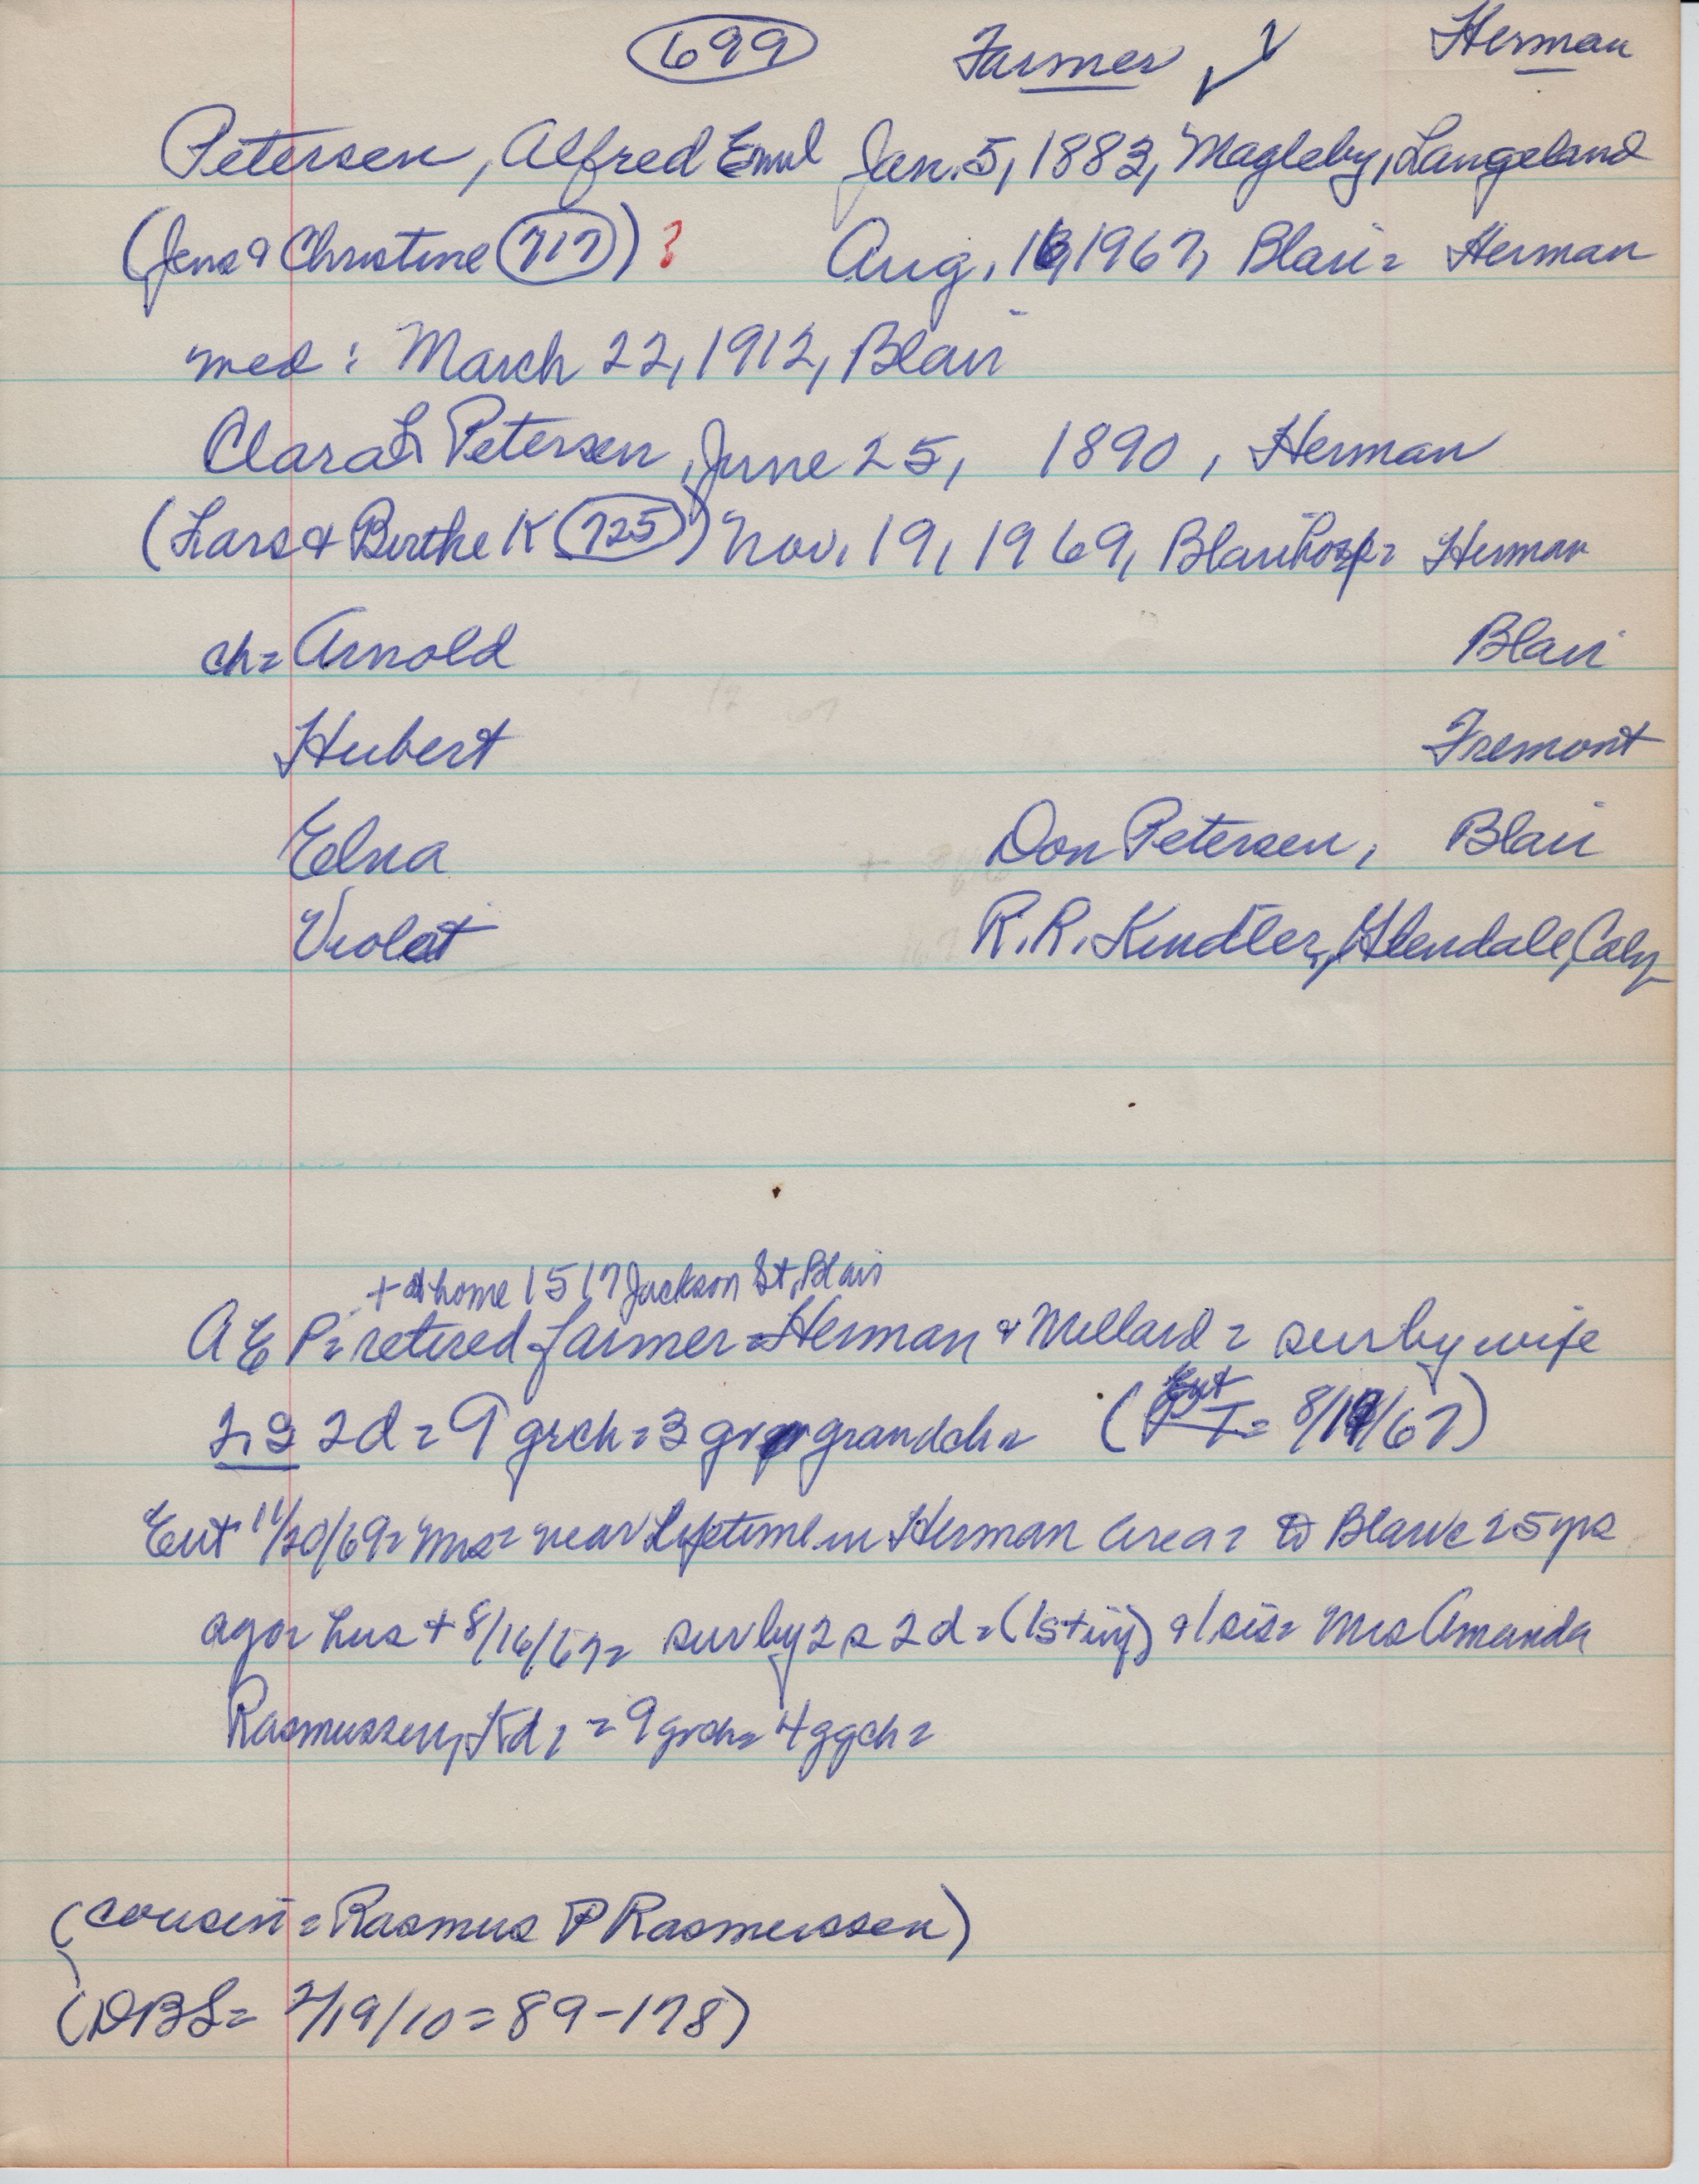 699 Farmer ✓ Herman
Petersen, Alfred Emil Jan. 5, 1883, Magleby, Langeland
(Jens & Christine 717) ? Aug. 16, 1967, Blair = Herman
med: March 22, 1912, Blair
Clara L Petersen, June 25, 1890, Herman
(Lars & Birthe K 725) Nov. 19, 1969, Blair hosp = Herman
ch = Arnold Blair
Hubert Fremont
Elna Don Petersen, Blair
Violet R. R. Kindler, Glendale, Calif
+ at home 1517 Jackson St, Blair
A E P = retired farmer = Herman & Millard = sur by wife
2 s 2 d = 9 grch = 3 gr grandch = (Ent = 8/17/67)
Ent 11/20/69 = Mrs = near lifetime in Herman area = to Blair 25 yrs
ago = hus + 8/16/67 = sur by 2 s 2 d = (1st iiij) & 1 sis = Mrs Amanda
Rasmussen, Kd, = 9 grch = 4 ggch =
(cousin = Rasmus P Rasmussen)
(DBL = 2/19/10 = 89-178)